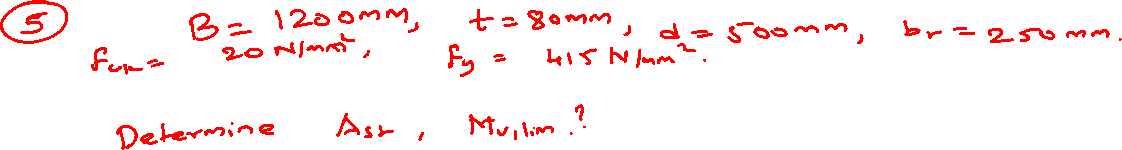 5 B = 1200mm, t = 80mm, d = 500mm, br = 250 mm.
fck = 20 N/mm², fy = 415 N/mm².
Determine Ast, Mu,lim.?